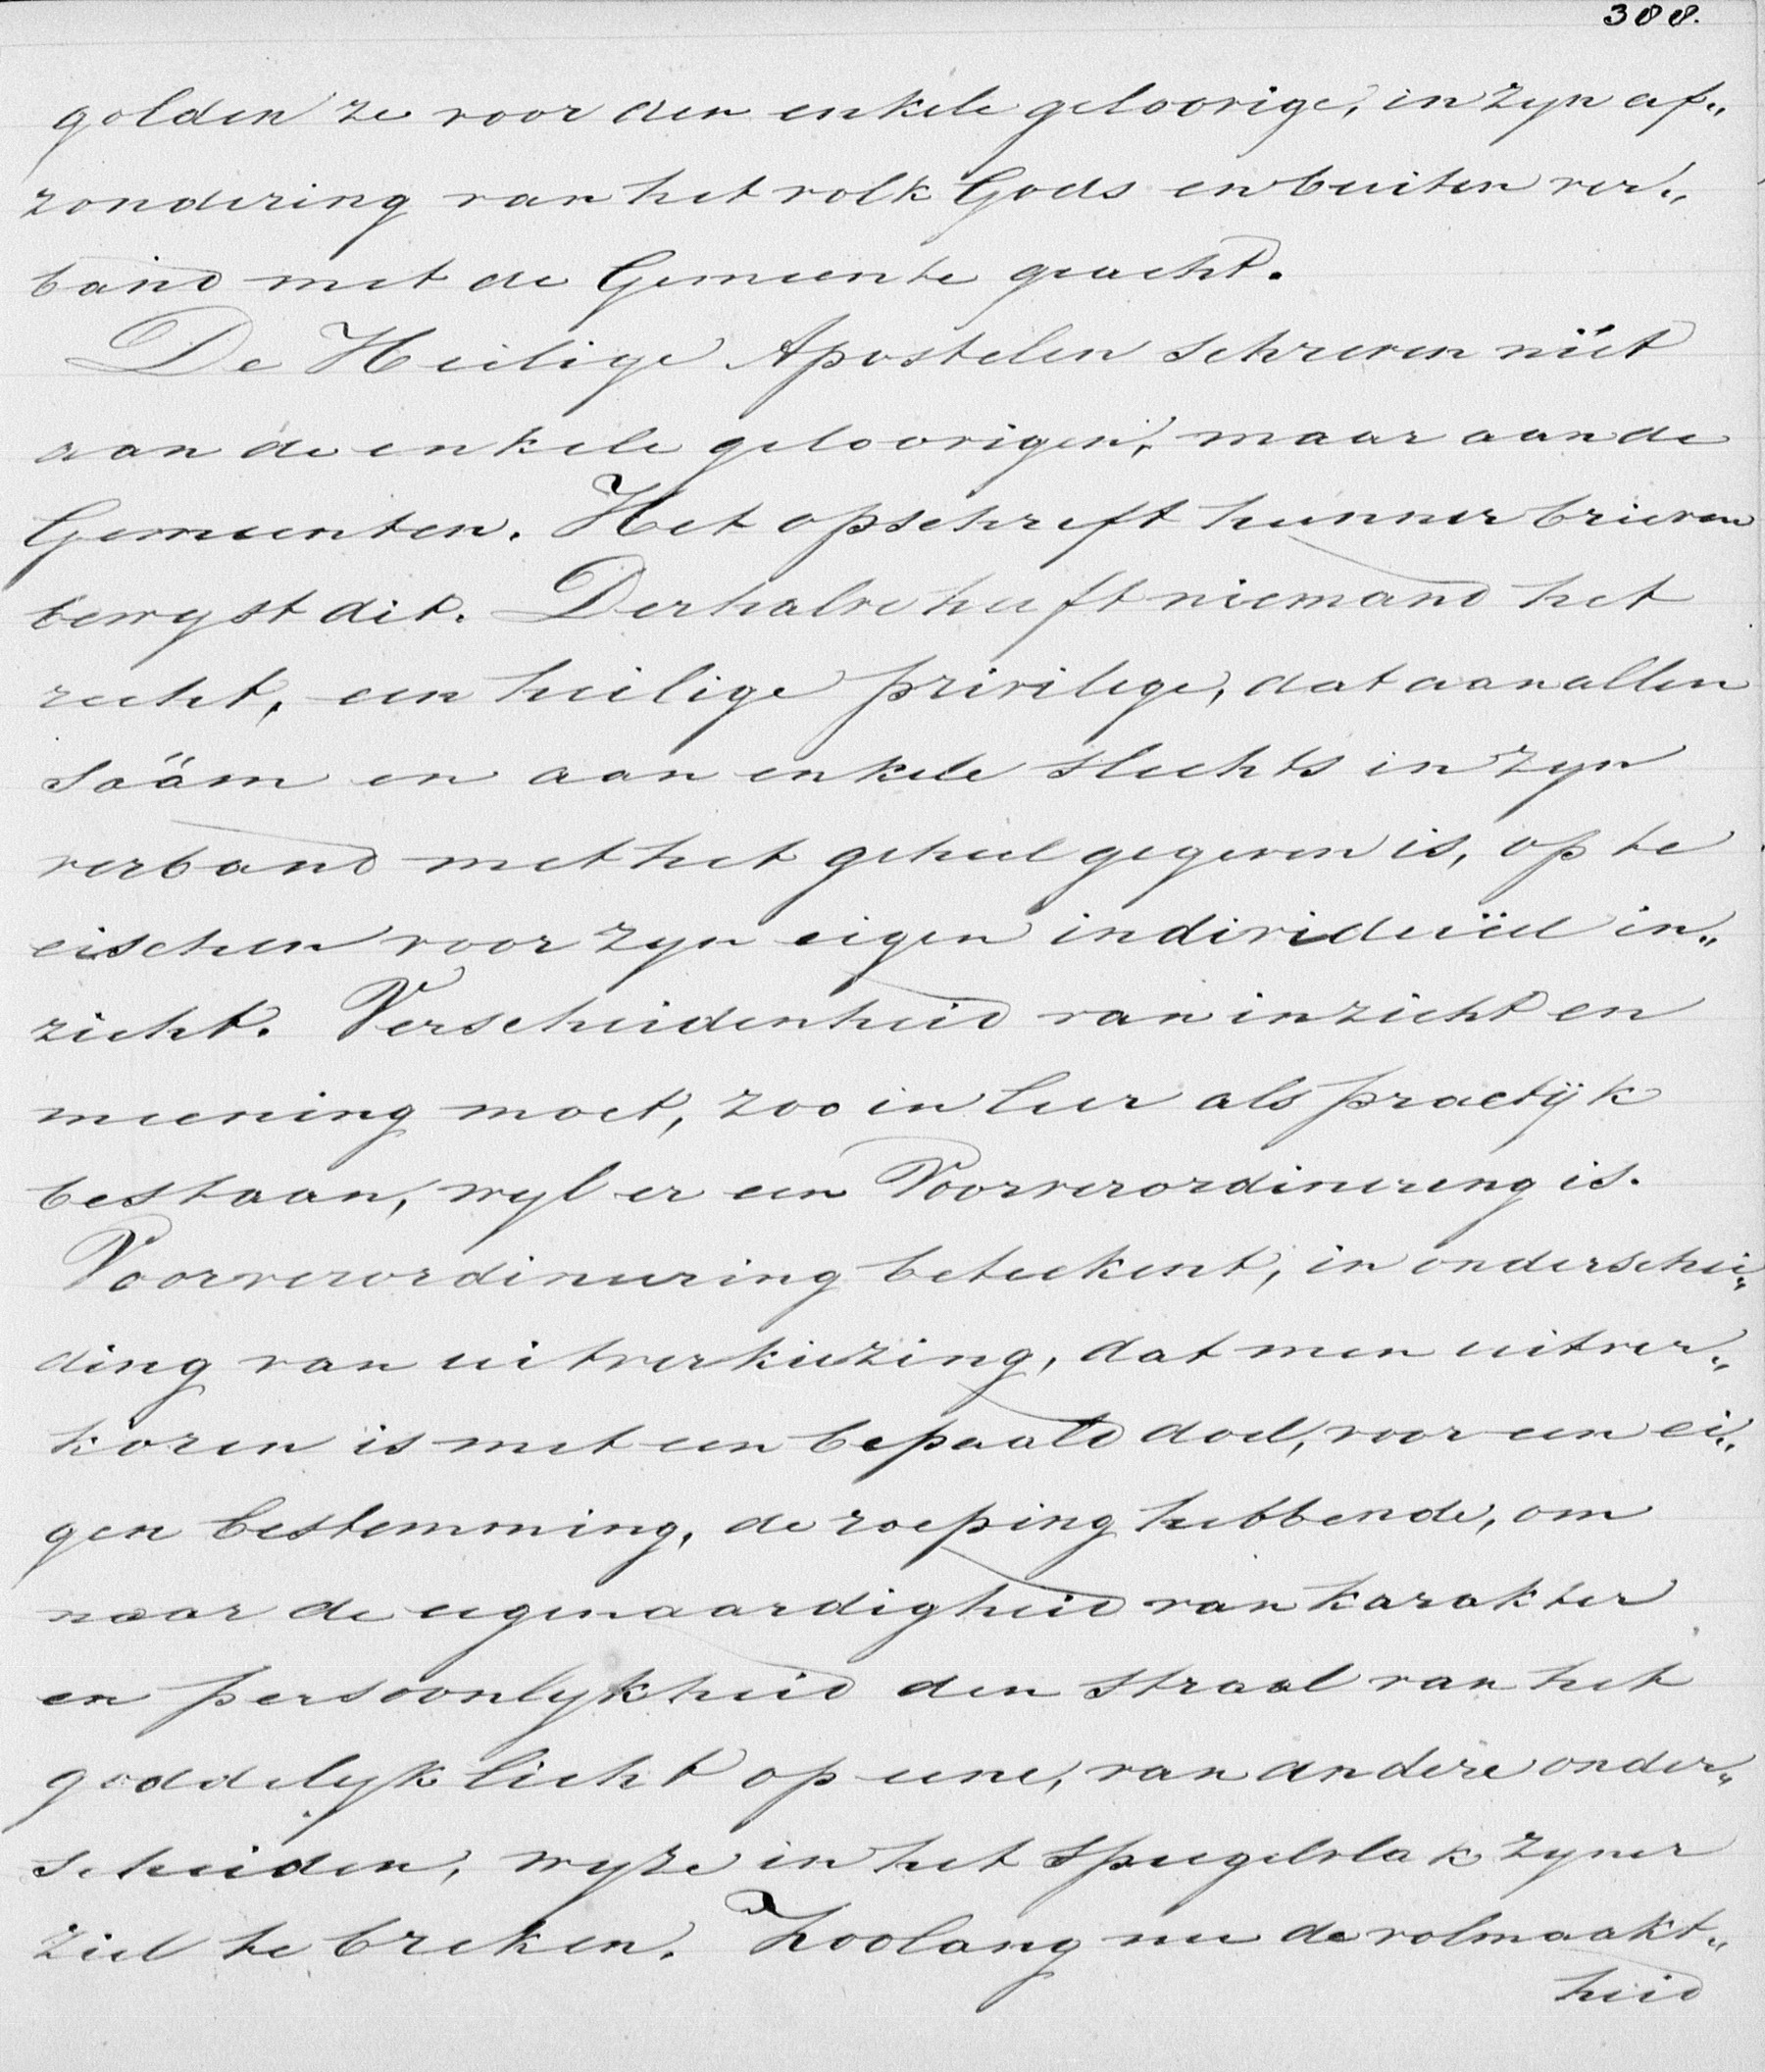 388.
golden ze voor den enkele geloovige, in zyn af„
zondering van het volk Gods en buiten ver„
band met de Gemeente geacht.
De Heilige Apostelen schreven niet
aan de enkele geloovigen, maar aan de
Gemeenten. Het opschrift hunner brieven
bewyst dit. Derhalve heeft niemand het
recht, een heilige privilege, dat aan allen
sääm en aan enkele slechts in zyn
verband met het geheel gegeven is, op te
eischen voor zyn eigen individuëel in„
zicht. Verscheidenheid van inzicht en
meening moet, zoo in leer als practijk
bestaan, wyl er een Voorverordineering is.
Voorverordineering beteekent, in onderschei„
ding van uitverkiezing, dat men uitver„
koren is met een bepaald doel, voor een ei„
gen bestemming, de roeping hebbende, om
naar de eigenaardigheid van karakter
en persoonlykheid den straal van het
goddelyk licht op eene, van andere onder„
scheiden, wyze in het spiegelvlak zyner
ziel te breken. Zoolang nu de volmaakt„
heid